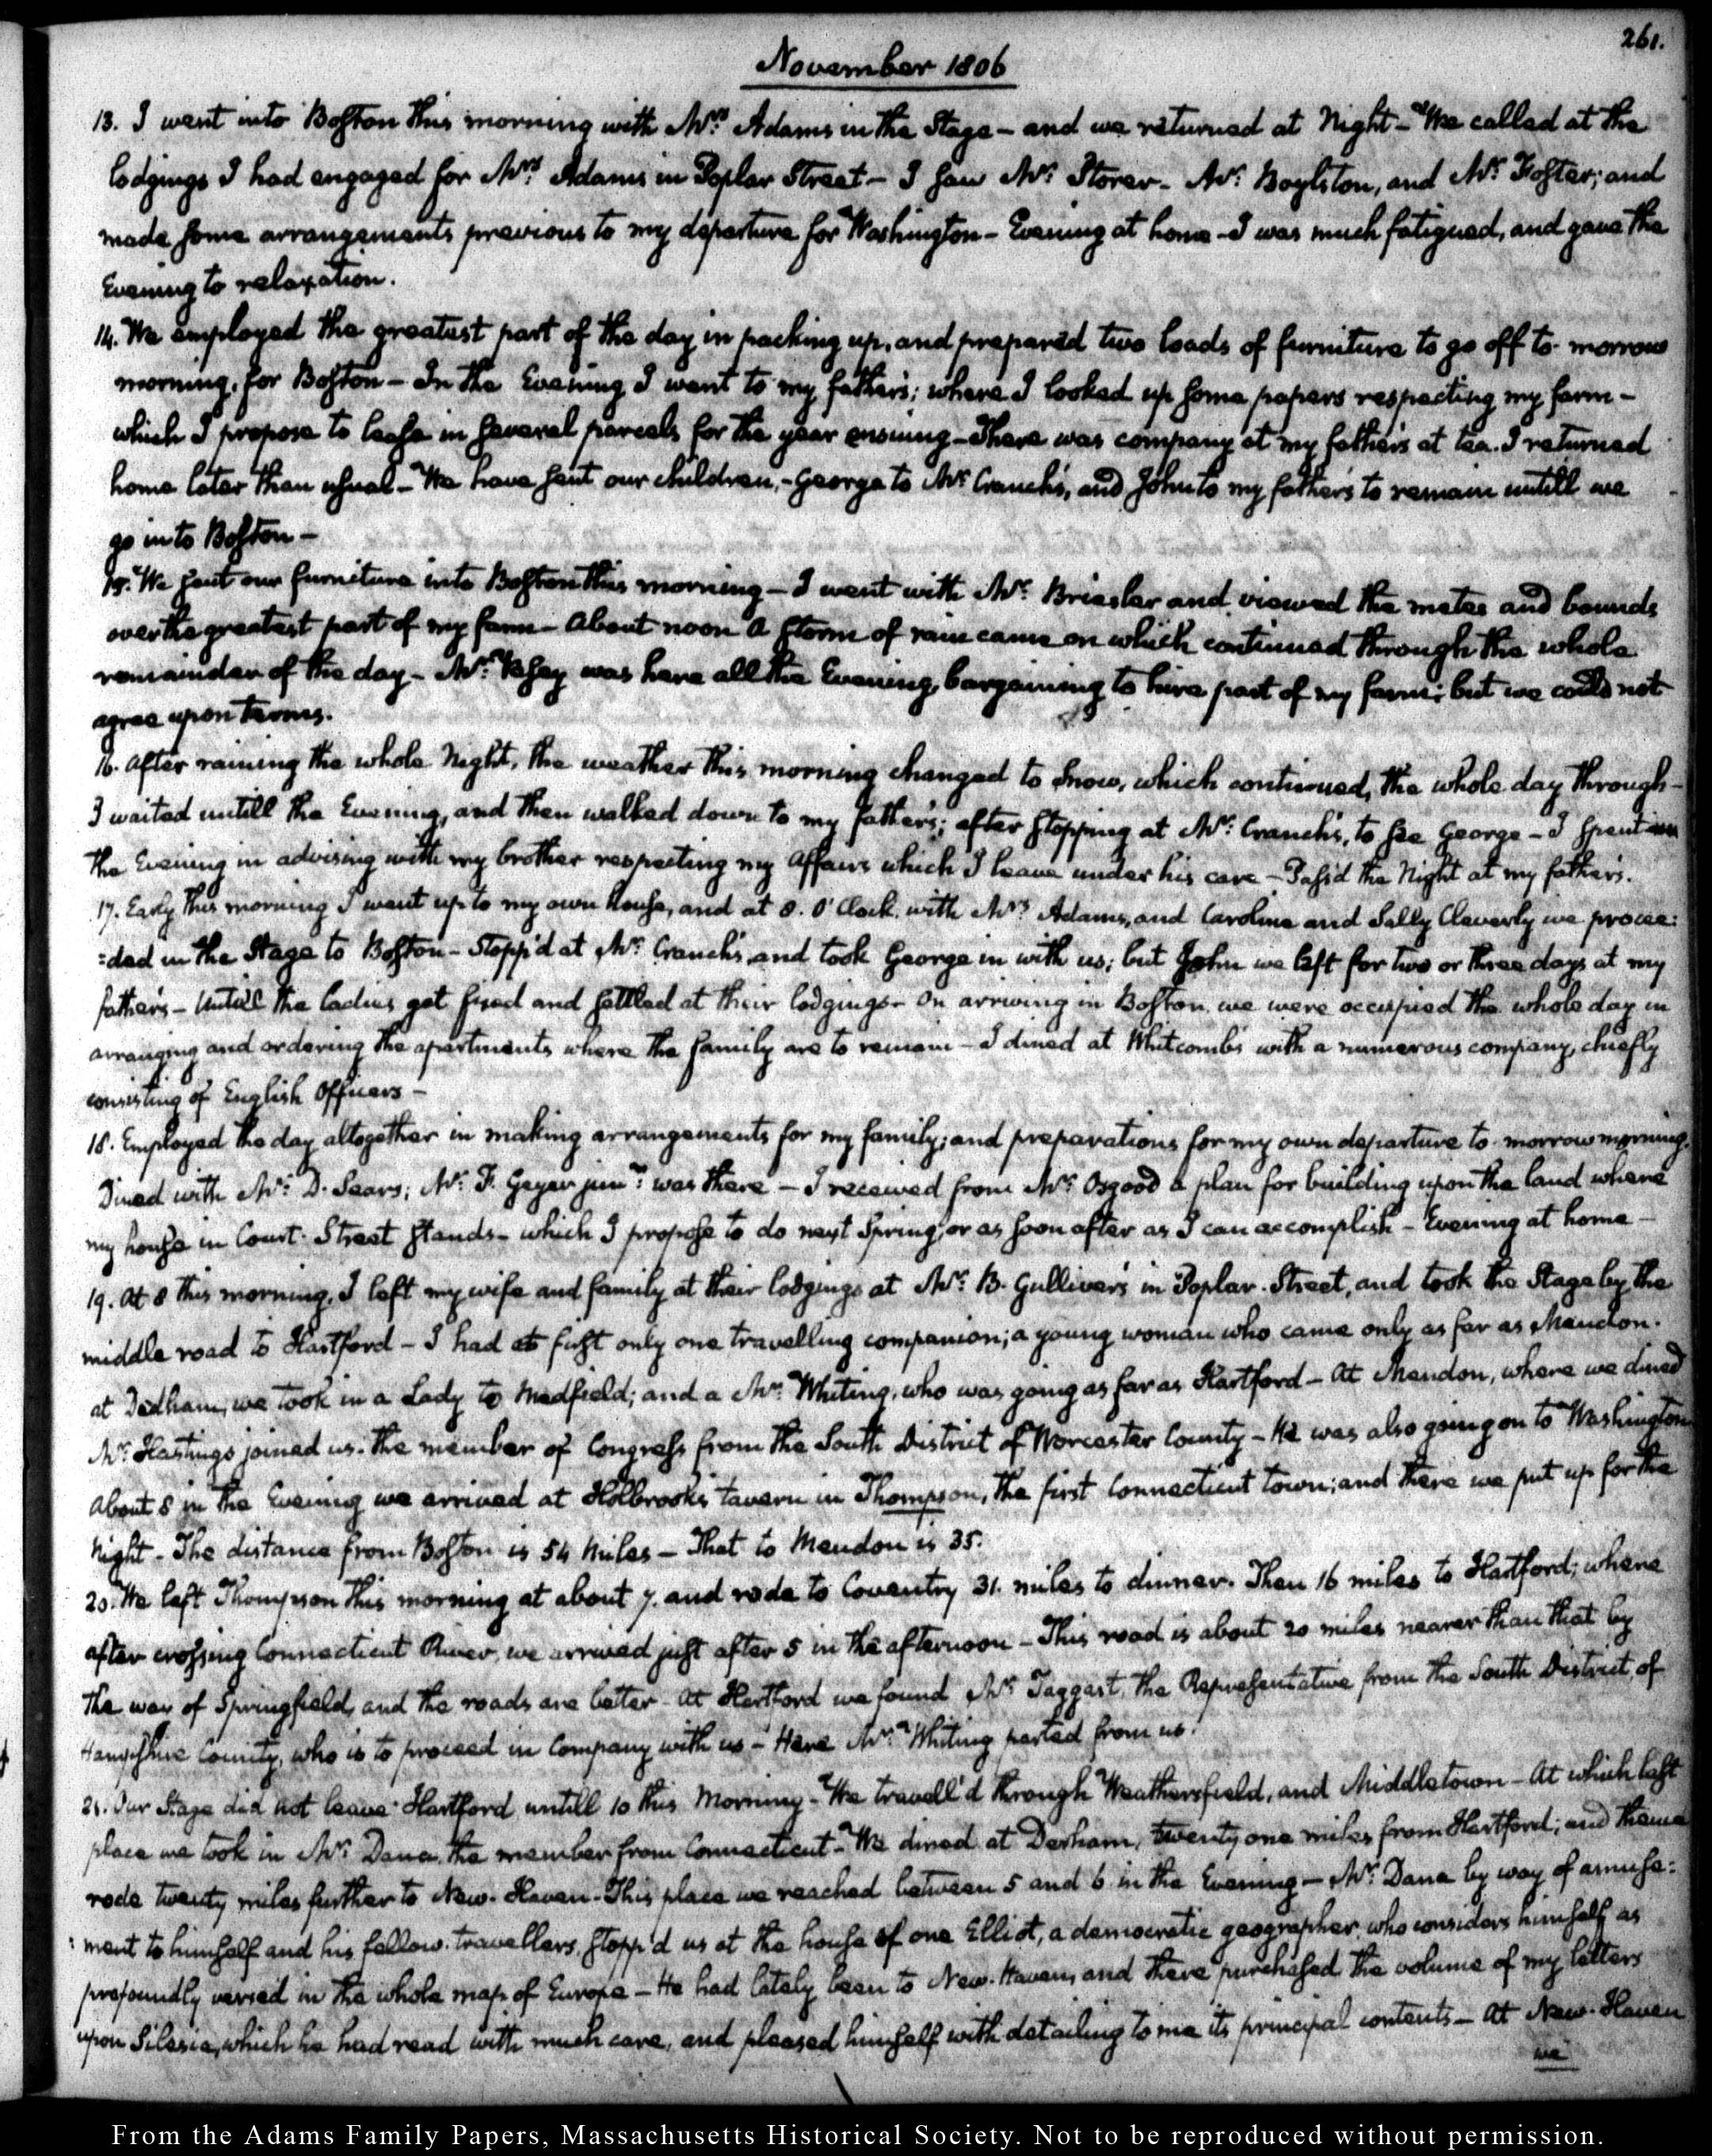 261.
November 1806
13. I went into Boston this morning with Mrs. Adams in the Stage – and we returned at Night – We called at the
lodgings I had engaged for Mrs. Adams in Poplar Street – I saw Mr. Storer – Mr. Boylston, and Mr. Foster; and
made some arrangements previous to my departure for Washington – Evening at home – I was much fatigued, and gave the
Evening to relaxation.
14. We employed the greatest part of the day in packing up, and prepared two loads of furniture to go off to-morrow
morning, for Boston – In the Evening I went to my father's; where I looked up some papers respecting my farm –
which I propose to lease in several parcels for the year ensuing – There was company at my father's at tea. I returned
home later than usual – We have sent our children, – George to Mr. Cranch's, and John to my father's to remain untill we
go in to Boston –
15. We sent our furniture into Boston this morning – I went with Mr. Briesler and viewed the metes and bounds
over the greatest part of my farm – About noon a storm of rain came on which continued through the whole
remainder of the day – Mr. Vesey was here all the Evening, bargaining to hire part of my farm; but we could not
agree upon terms.
16. After raining the whole Night, the weather this morning changed to Snow, which continued, the whole day through –
I waited untill the Evening, and then walked down to my father's; after stopping at Mr. Cranch's, to see George – I spent
the Evening in advising with my brother respecting my affairs which I leave under his care – Pass'd the Night at my father's.
17. Early this morning I went up to my own house, and at 8. O'Clock, with Mrs. Adams, and Caroline and Sally Cleverly we procee:
:ded in the Stage to Boston – Stopp'd at Mr. Cranch's and took George in with us; but John we left for two or three days at my
father's – Untill the ladies get fixed and settled at their lodgings – On arriving in Boston we were occupied the whole day in
arranging and ordering the apartments where the family are to remain – I dined at Whitcomb's with a numerous company, chiefly
consisting of English Officers –
18. Employed the day altogether in making arrangements for my family; and preparations for my own departure to-morrow morning.
Dined with Mr. D. Sears; Mr. F. Geyer junr. was there – I received from Mr. Osgood a plan for building upon the land where
my house in Court-Street stands – which I propose to do next Spring, or as soon after as I can accomplish – Evening at home –
19. At 8 this morning, I left my wife and family at their lodgings at Mr. B. Gulliver's in Poplar-Street, and took the Stage by the
middle road to Hartford – I had at first only one travelling companion; a young woman who came only as far as Mendon.
at Dedham, we took in a Lady to Medfield; and a Mr. Whiting, who was going as far as Hartford – At Mendon, where we dined
Mr. Hastings joined us. the member of Congress from the South District of Worcester County – He was also going on to Washington
About 8 in the Evening we arrived at Holbrook's tavern in Thompson, the first Connecticut town; and there we put up for the
Night – The distance from Boston is 54 Miles – That to Mendon is 35.
20. We left Thompson this morning at about 7. and rode to Coventry 31. miles to dinner. Then 16 miles to Hartford; where
after crossing Connecticut River, we arrived just after 5 in the afternoon – This road is about 20 miles nearer than that by
the way of Springfield, and the roads are better – At Hartford we found Mr. Taggart, the Representative from the South District, of
Hampshire County, who is to proceed in Company with us – Here Mr. Whiting parted from us.
21. Our Stage did not leave Hartford untill 10 this Morning – We travell'd through Weathersfield, and Middletown – At which last
place we took in Mr. Dana, the member from Connecticut – We dined at Derham, twenty one miles from Hartford; and thence
rode twenty miles further to New-Haven – This place we reached between 5 and 6 in the Evening – Mr. Dana by way of amuse:
:ment to himself and his fellow-travellers, stopp'd us at the house of one Elliot, a democratic geographer, who considers himself as
profoundly versed in the whole map of Europe – He had lately been to New-Haven, and there purchased the volume of my letters
upon Silesia, which he had read with much care, and pleased himself with detailing to me its principal contents – At New-Haven
we
From the Adams Family Papers, Massachusetts Historical Society. Not to be reproduced without permission.